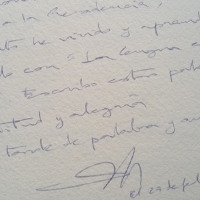 a la Residencia,
he vivido y aprend
do con "La Lengua e
Escribo estas pala
titud y alegría
tarde de palabra y
el 29 de fe